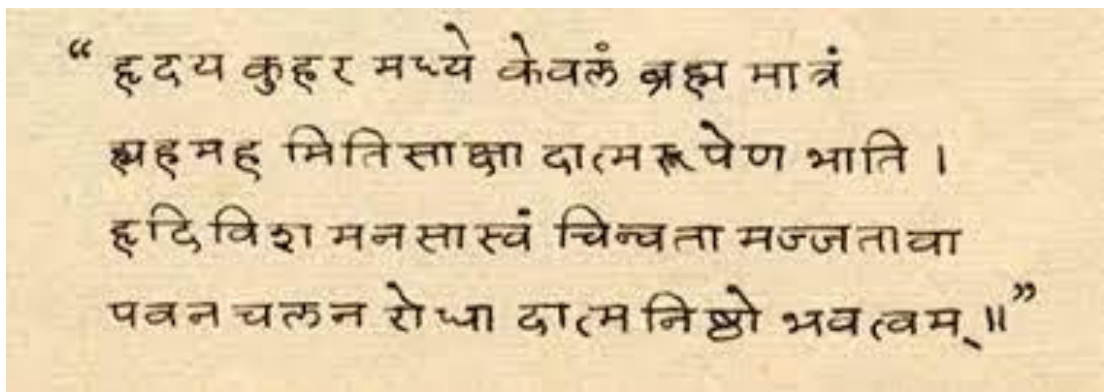 “ हृदय कुहर मध्ये केवलं ब्रह्म मात्रं
ह्यहमह मितिसाक्षा दात्मरूपेण भाति ।
हृदि विश मनसास्वं चिन्वता मज्जतावा
पवन चलन रोधा दात्मनिष्ठो भवत्वम् ॥ ”